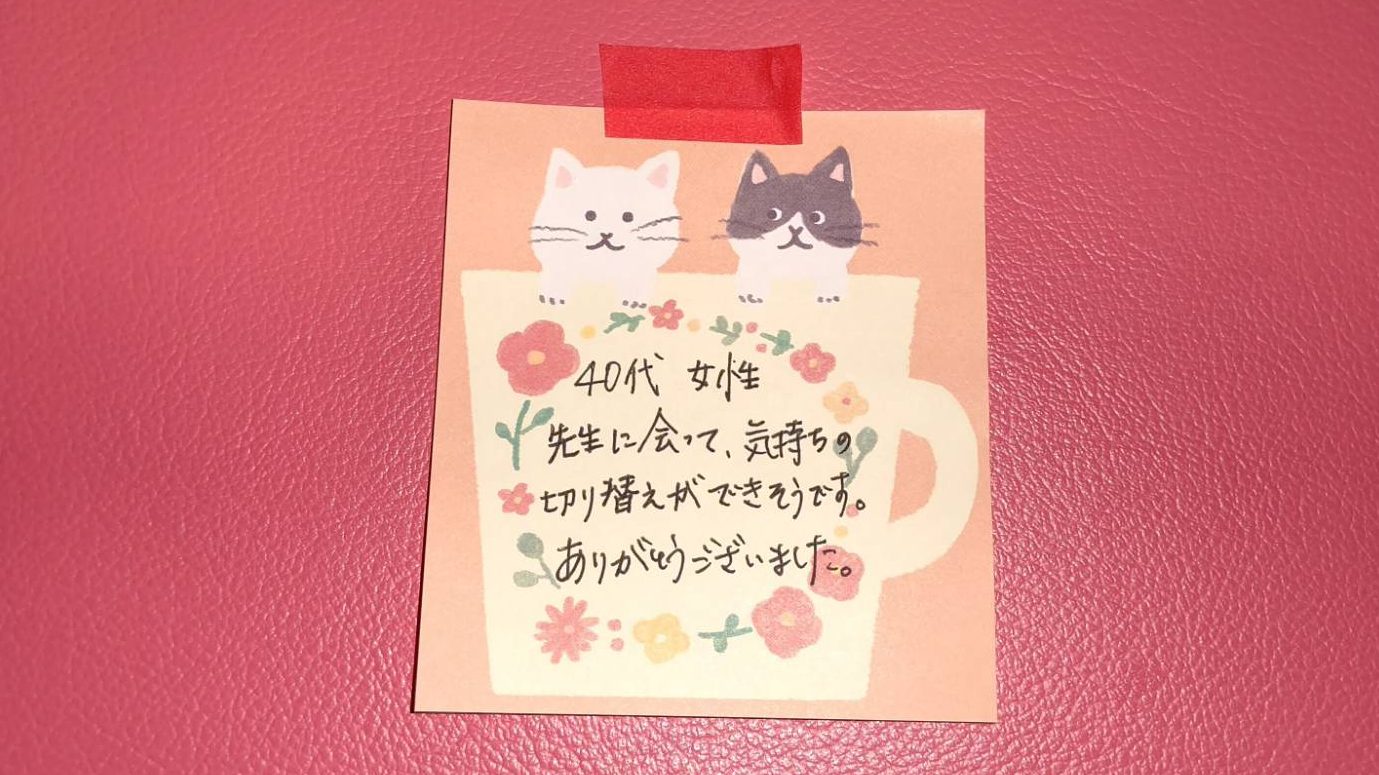 40代 女性
先生に会って、気持ちの
切り替えができそうです。
ありがとうございました。